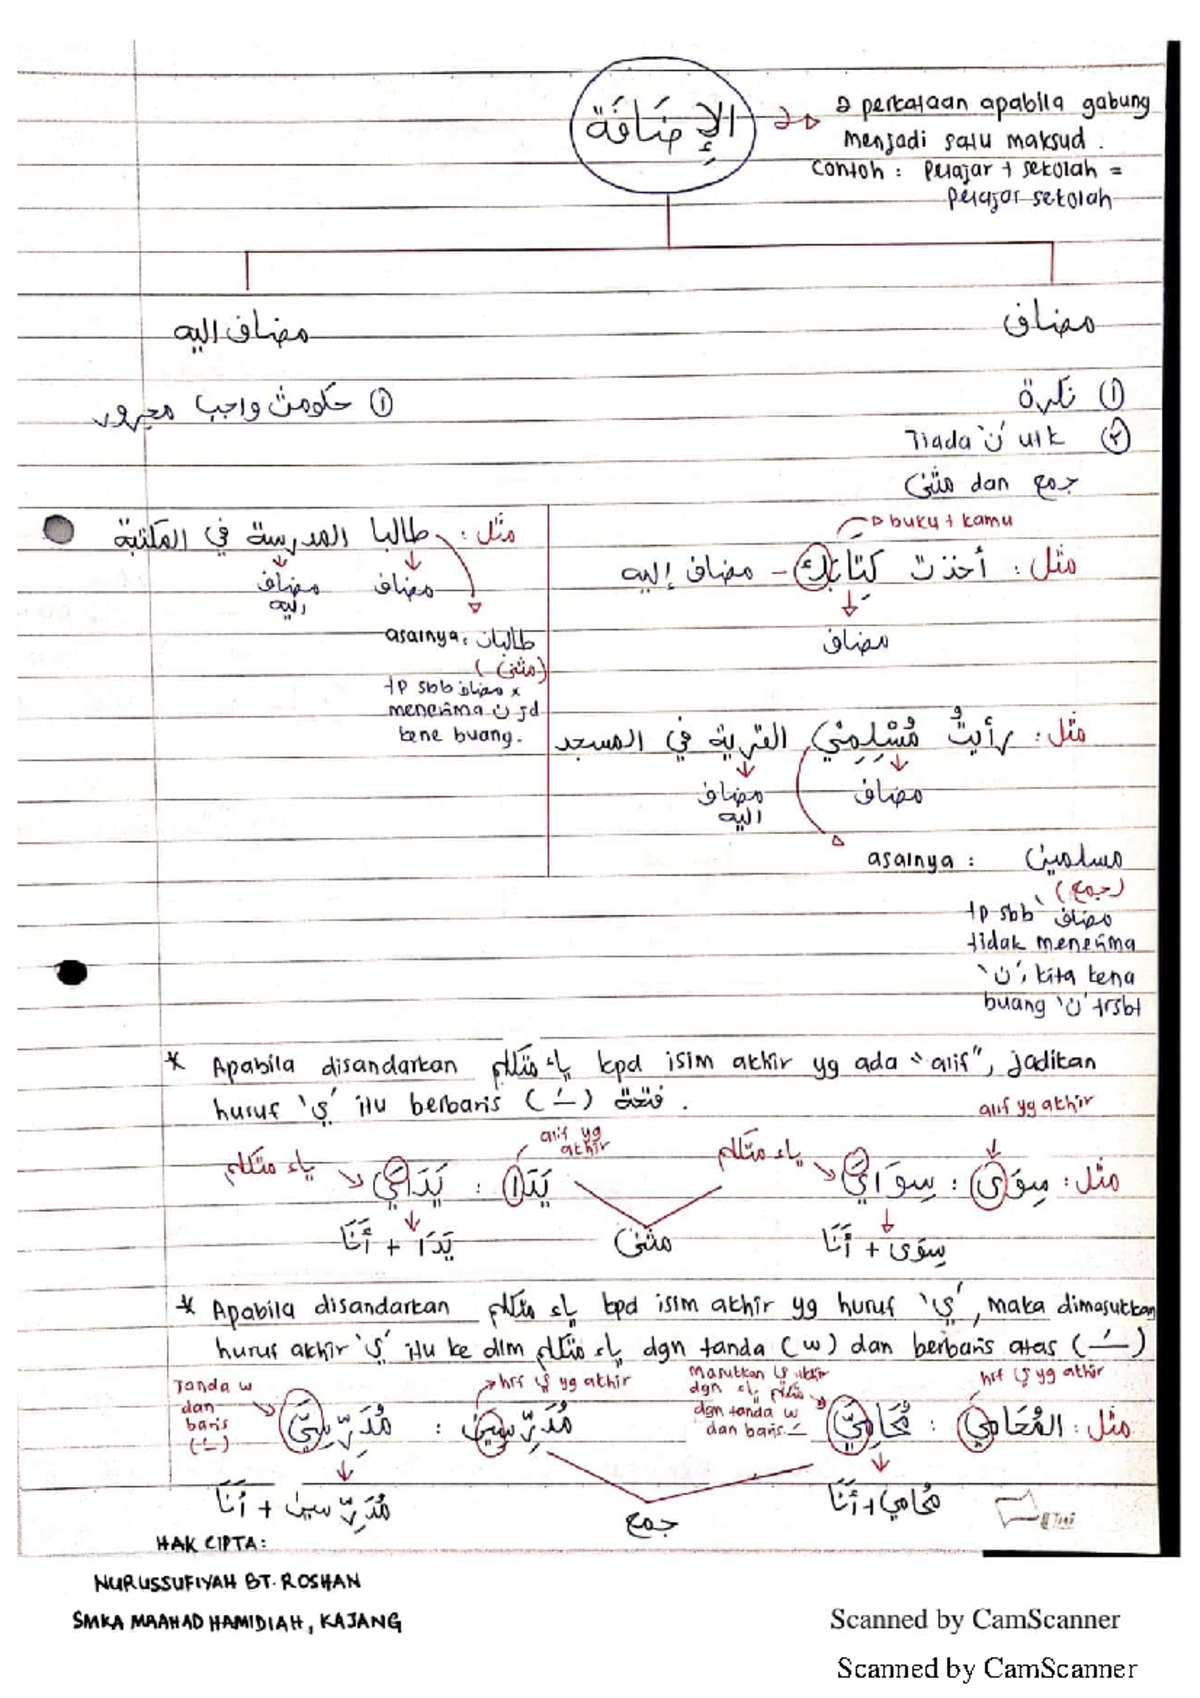 الإِضَافَة
2 perkataan apabila gabung
menjadi satu maksud.
Contoh : Pelajar + sekolah =
pelajar sekolah
مضاف
مضاف اليه
① نكرة
② Tiada 'ن' utk
جمع dan مثنى
① حكومڽ واجب مجرور
buku + kamu
مثل : أخذت كِتَابَكَ - مضاف إليه
مضاف
مثل : رأيتُ مُسْلِمِيْ القرية في المسجد
مضاف
مضاف اليه
asalnya : مسلمين
(جمع)
tp sbb مضاف
tidak menerima
'ن', kita kena
buang 'ن' trsbt
مثل : طالبا المدرسة في المكتبة
مضاف
مضاف اليه
asalnya : طالبان
(مثنى)
tp sbb مضاف x
menerima ن jd
kene buang.
* Apabila disandarkan ياء متكلم kpd isim akhir yg ada "alif", jadikan
huruf 'ي' itu berbaris (ـَ) فتحة.
alif yg akhir
ياء متكلم
مثل : سِوَى : سِوَايَ
سِوَى + أَنَا
alif yg
akhir
ياء متكلم
يَدَا : يَدَايَ
يَدَا + أَنَا
مثنى
* Apabila disandarkan ياء متكلم kpd isim akhir yg huruf 'ي', maka dimasukkan
huruf akhir 'ي' itu ke dlm ياء متكلم dgn tanda (w) dan berbaris atas (ـَ)
hrf ي yg akhir
Masukkan ي akhir
dgn ياء متكلم
dgn tanda w
dan baris ـَ
مثل : المُحَامِي : مُحَامِيَّ
مُحَامِي + أَنَا
hrf ي yg akhir
Tanda w
dan
baris
(ـَ)
مُدَرِّسِيْنَ : مُدَرِّسِيَّ
مُدَرِّسين + أَنَا
جمع
HAK CIPTA:
NURUSSUFIYAH BT. ROSHAN
SMKA MAAHAD HAMIDIAH, KAJANG
Scanned by CamScanner
Scanned by CamScanner